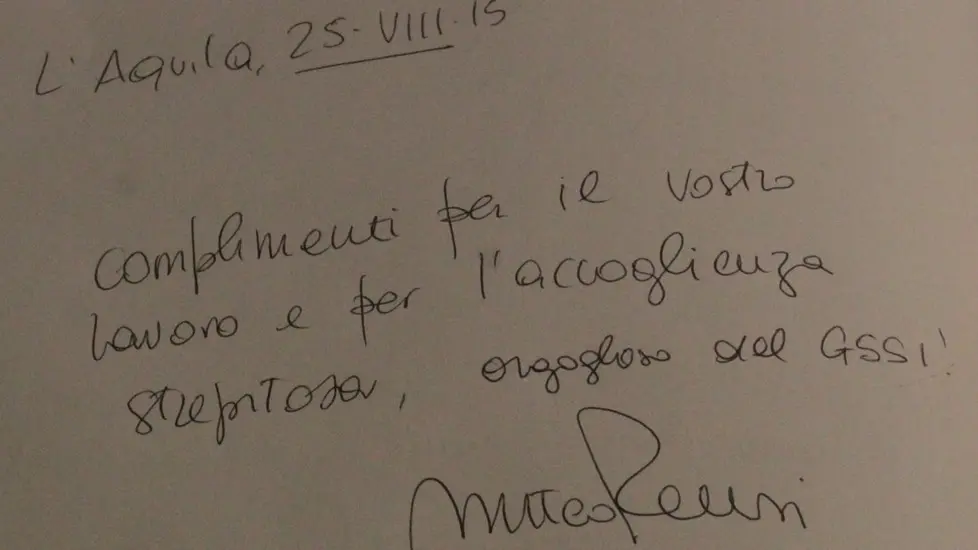 L'Aquila, 25-VIII-15
complimenti per il vostro
lavoro e per l'accoglienza
strepitosa, orgoglioso del GSSI!
Matteo Renzi